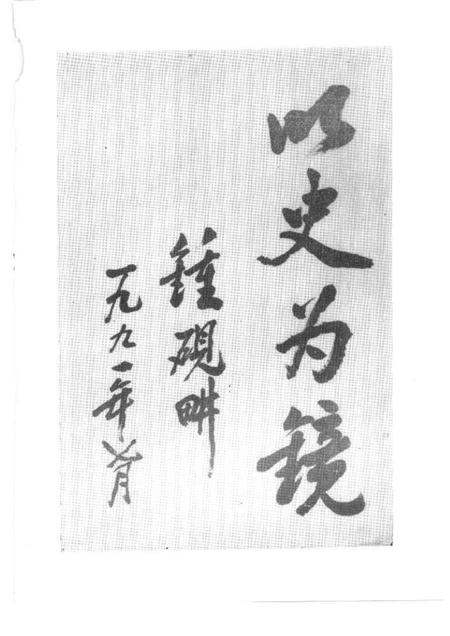 以史为镜
鍾硯畊
一九九一年